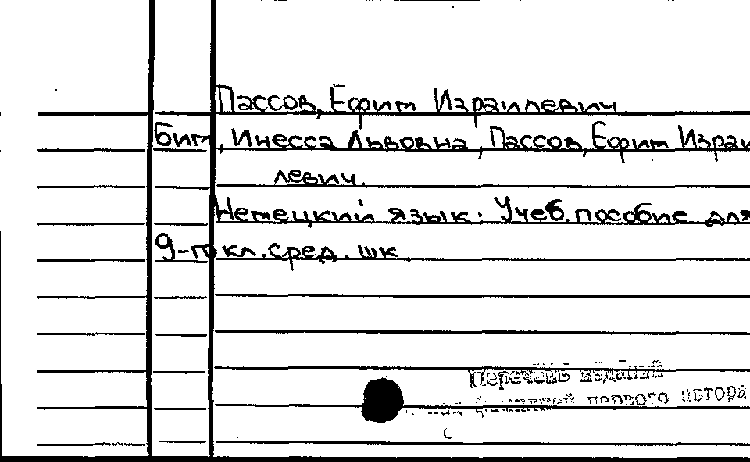 Пассов, Ефим Израилевич
Бим, Инесса Львовна, Пассов, Ефим Израи
левич.
Немецкий язык: Учеб. пособие для
9-го кл. сред. шк.
Перечень изданий
первого автора